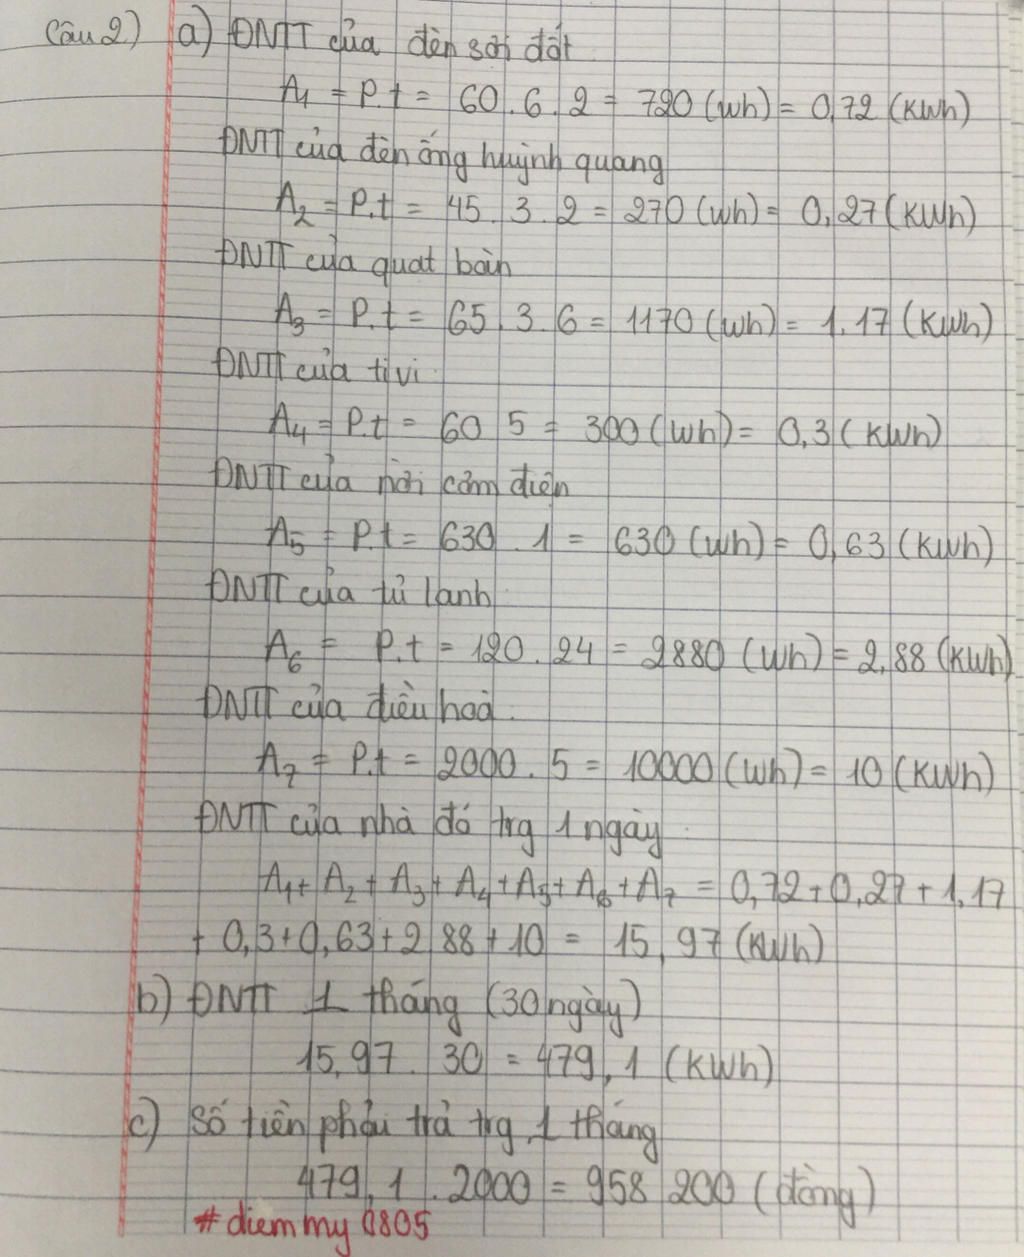 Câu 2) a) ĐNTT của đèn sợi đốt
A1 = P.t = 60.6.2 = 720 (Wh) = 0,72 (KWh)
ĐNTT của đèn ống huỳnh quang
A2 = P.t = 45.3.2 = 270 (Wh) = 0,27 (KWh)
ĐNTT của quạt bàn
A3 = P.t = 65.3.6 = 1170 (Wh) = 1,17 (KWh)
ĐNTT của tivi
A4 = P.t = 60 5 = 300 (Wh) = 0,3 (KWh)
ĐNTT của nồi cơm điện
A5 = P.t = 630.1 = 630 (Wh) = 0,63 (KWh)
ĐNTT của tủ lạnh
A6 = P.t = 120.24 = 2880 (Wh) = 2,88 (KWh)
ĐNTT của điều hoà
A7 = P.t = 2000.5 = 10000 (Wh) = 10 (KWh)
ĐNTT của nhà đó trg 1 ngày
A1 + A2 + A3 + A4 + A5 + A6 + A7 = 0,72 + 0,27 + 1,17
+ 0,3 + 0,63 + 2,88 + 10 = 15,97 (KWh)
b) ĐNTT 1 tháng (30 ngày)
15,97.30 = 479,1 (KWh)
c) Số tiền phải trả trg 1 tháng
479,1.2000 = 958 200 (đồng)
#diemmy0805